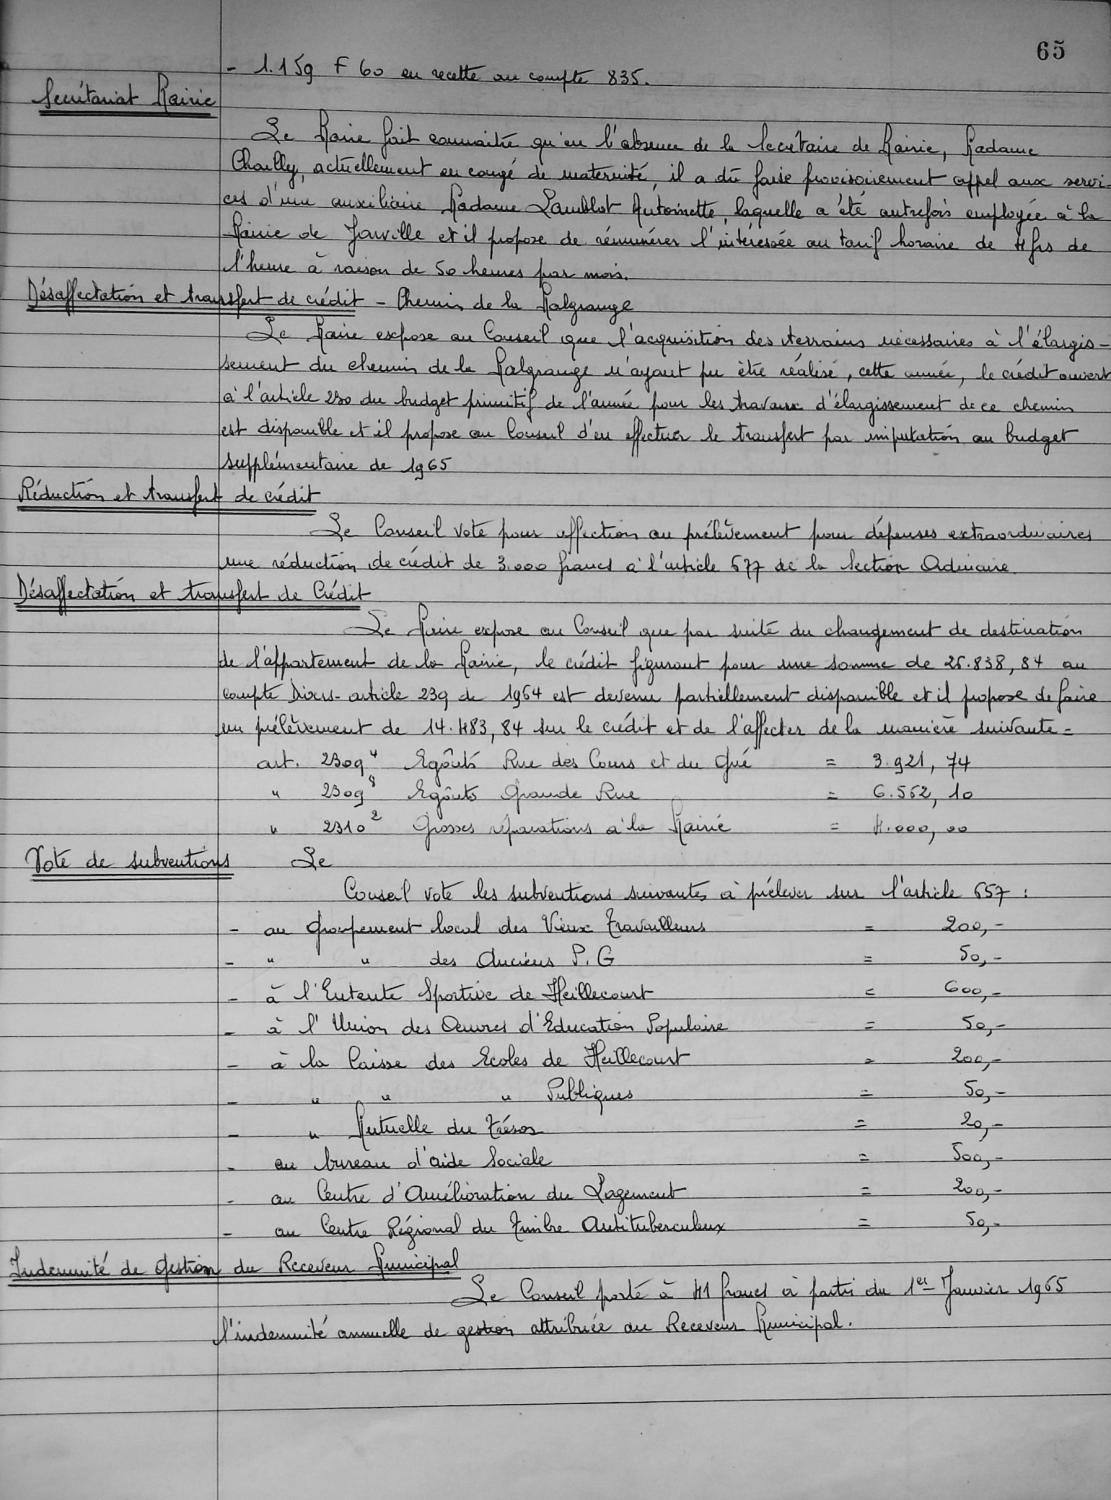 65
- 1.159 F 60 en recette au compte 835.
Secrétariat Mairie
Le Maire fait connaitre qu'en l'absence de la Secrétaire de Mairie, Madame
Chailly, actuellement en congé de maternité, il a dû faire provisoirement appel aux servi-
ces d'une auxiliaire Madame Lamblot Antoinette, laquelle a été autrefois employée à la
Mairie de Jarville et il propose de rémunérer l'intéressée au tarif horaire de 4 frs de
l'heure à raison de 50 heures par mois.
Désaffectation et transfert de crédit - Chemin de la Malgrange
Le Maire expose au Conseil que l'acquisition des terrains nécessaires à l'élargis-
sement du chemin de la Malgrange n'ayant pu être réalisé, cette année, le crédit ouvert
à l'article 230 du budget primitif de l'année pour les travaux d'élargissement de ce chemin
est disponible et il propose au Conseil d'en effectuer le transfert par imputation au budget
supplémentaire de 1965
Réduction et transfert de crédit
Le Conseil vote pour affection au prélèvement pour dépenses extraordinaires
une réduction de crédit de 3.000 francs à l'article 677 de la Section Ordinaire.
Désaffectation et transfert de Crédit
Le Maire expose au Conseil que par suite du changement de destination
de l'appartement de la Mairie, le crédit figurant pour une somme de 25.838,84 au
compte Divers - article 239 de 1964 est devenu partiellement disponible et il propose de faire
un prélèvement de 14.483,84 sur le crédit et de l'affecter de la manière suivante =
art. 2309⁴ Egoûts Rue des Cours et du Gué = 3.921,74
" 2309⁸ Egoûts Grande Rue = 6.562,10
" 2310² Grosses réparations à la Mairie = 4.000,00
Vote de subventions Le
Conseil vote les subventions suivantes à prélever sur l'article 657 :
- au Groupement local des Vieux Travailleurs = 200,-
- " " des Anciens P.G = 50,-
- à l'Entente Sportive de Heillecourt = 600,-
- à l'Union des Œuvres d'Education Populaire = 50,-
- à la Caisse des Ecoles de Heillecourt = 200,-
- " " " Publiques = 50,-
- " Mutuelle du Trésor = 20,-
- au bureau d'aide Sociale = 500,-
- au Centre d'Amélioration du Logement = 200,-
- au Centre Régional du Timbre Antituberculeux = 50,-
Indemnité de Gestion du Receveur Municipal
Le Conseil porte à 41 francs à partir du 1er Janvier 1965
l'indemnité annuelle de gestion attribuée au Receveur Municipal.